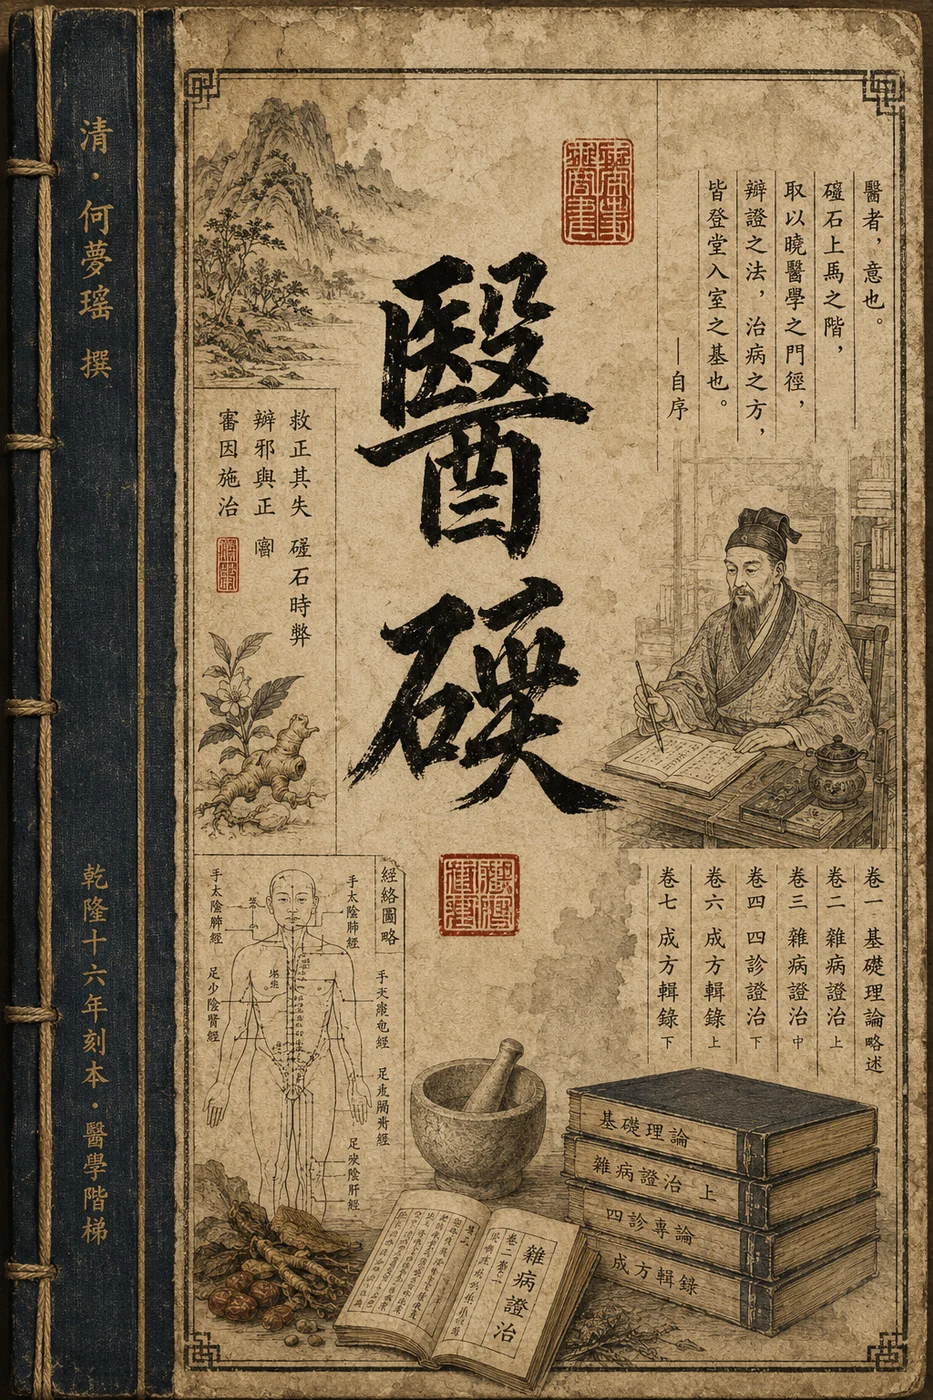 清·何夢瑤 撰
乾隆十六年刻本·醫學階梯
醫者，意也。
磑石上馬之階，
取以曉醫學之門徑，
辯證之法，治病之方，
皆登堂入室之基也。
——自序
醫
救正其失 磋石時弊
辧邪與正
審因施治
經絡圖略
手太陰肺經
手太陰肺經
足少陰腎經
卷一 基礎理論略述
卷二 雜病證治 上
卷三 雜病證治 中
卷四 四診證治 下
卷六 成方輯錄 上
卷七 成方輯錄 下
基礎理論
雜病證治 上
四診專論
成方輯錄
雜病證治
卷二